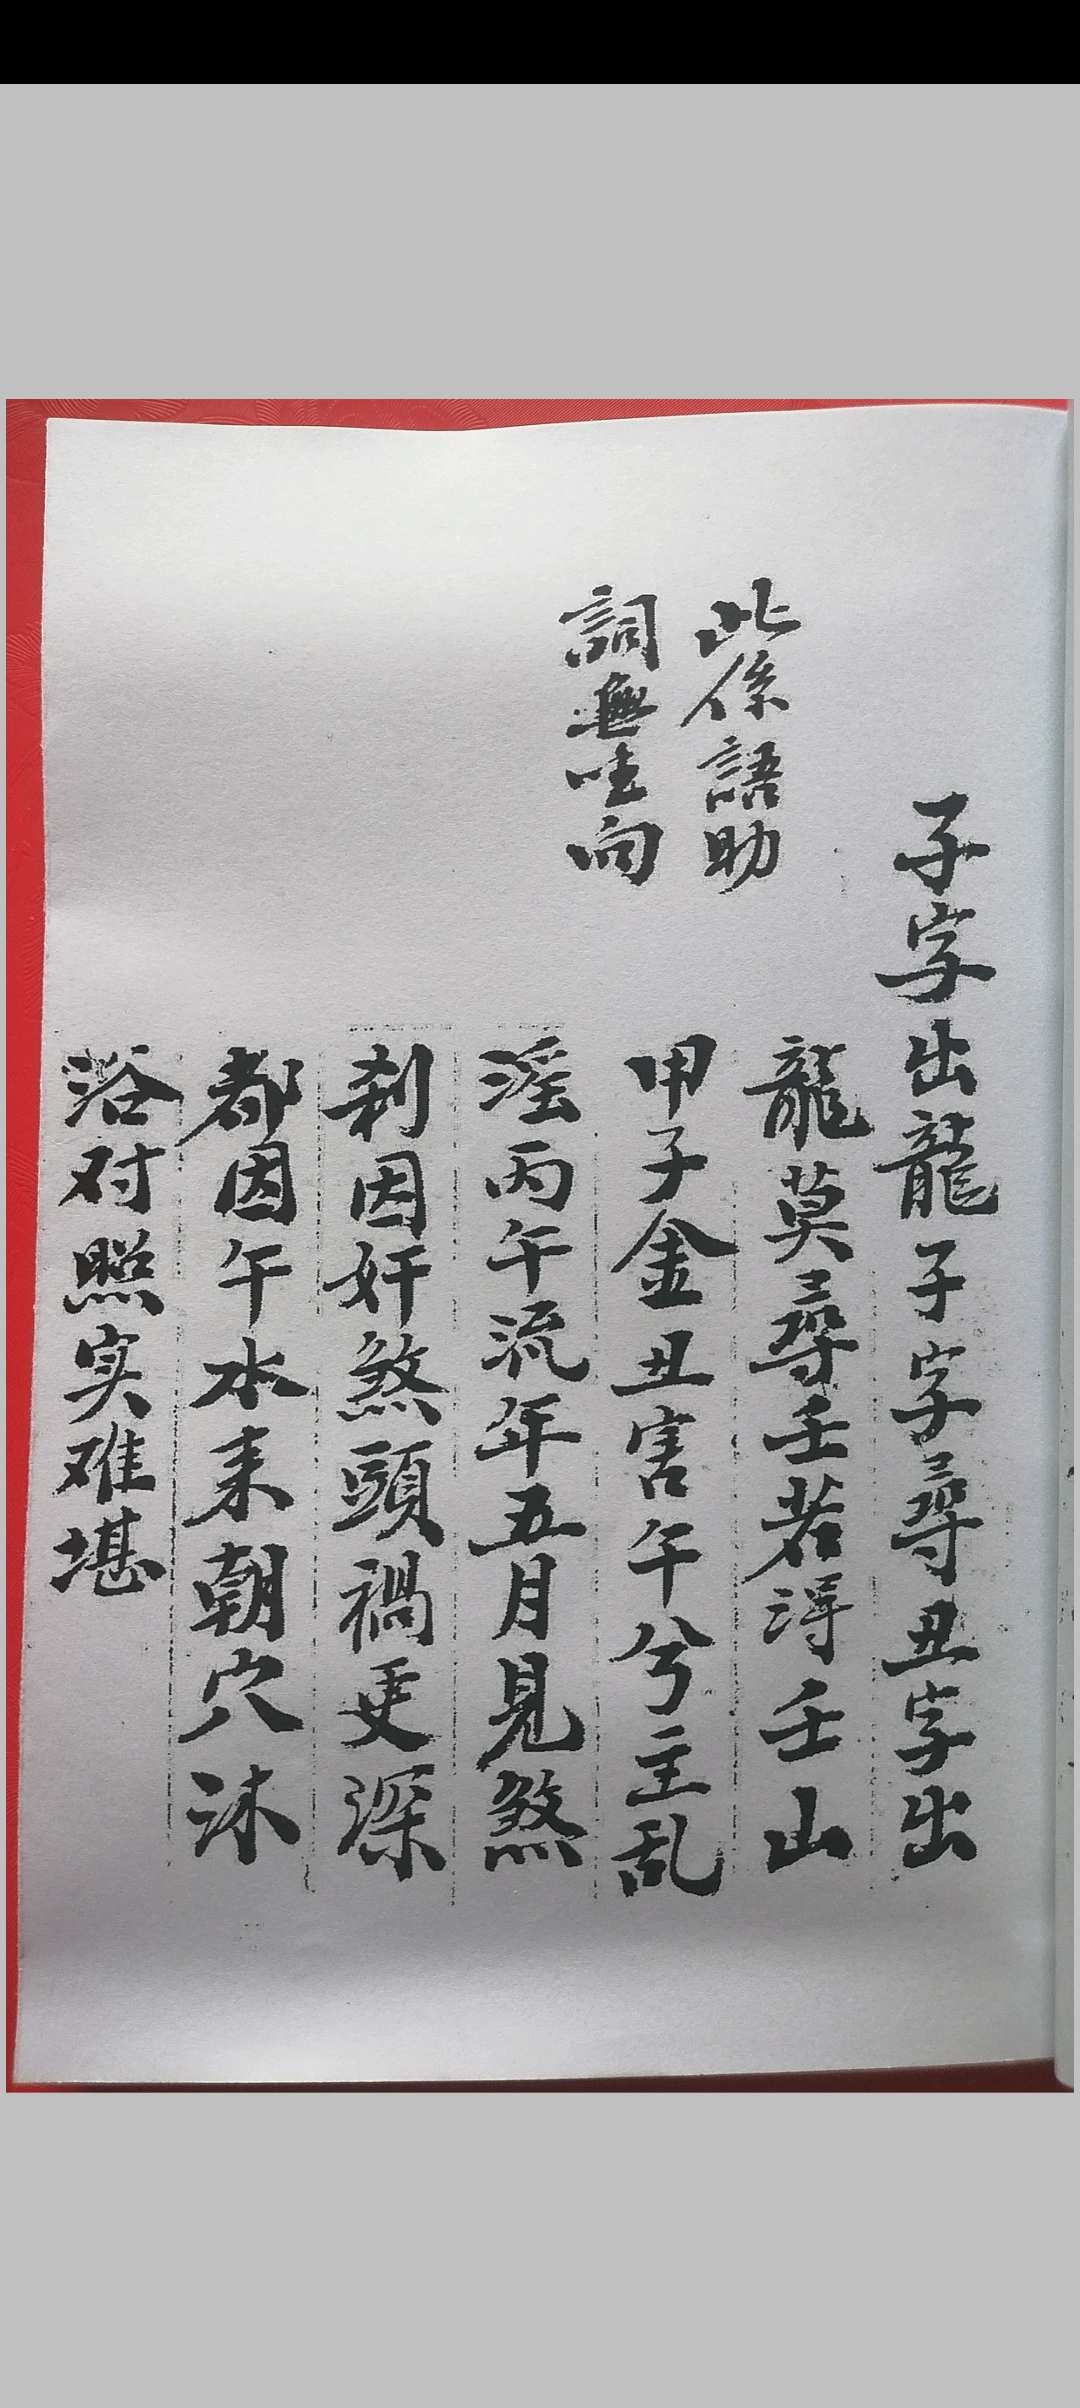 子字出龍子字尋丑字出
龍莫尋壬若得壬山
甲子金丑害午兮主乱
淫丙午流年五月見煞
刹因奸煞頭禍更深
都因午水来朝穴沐
浴对照实难堪
此係語助
詞無坐向